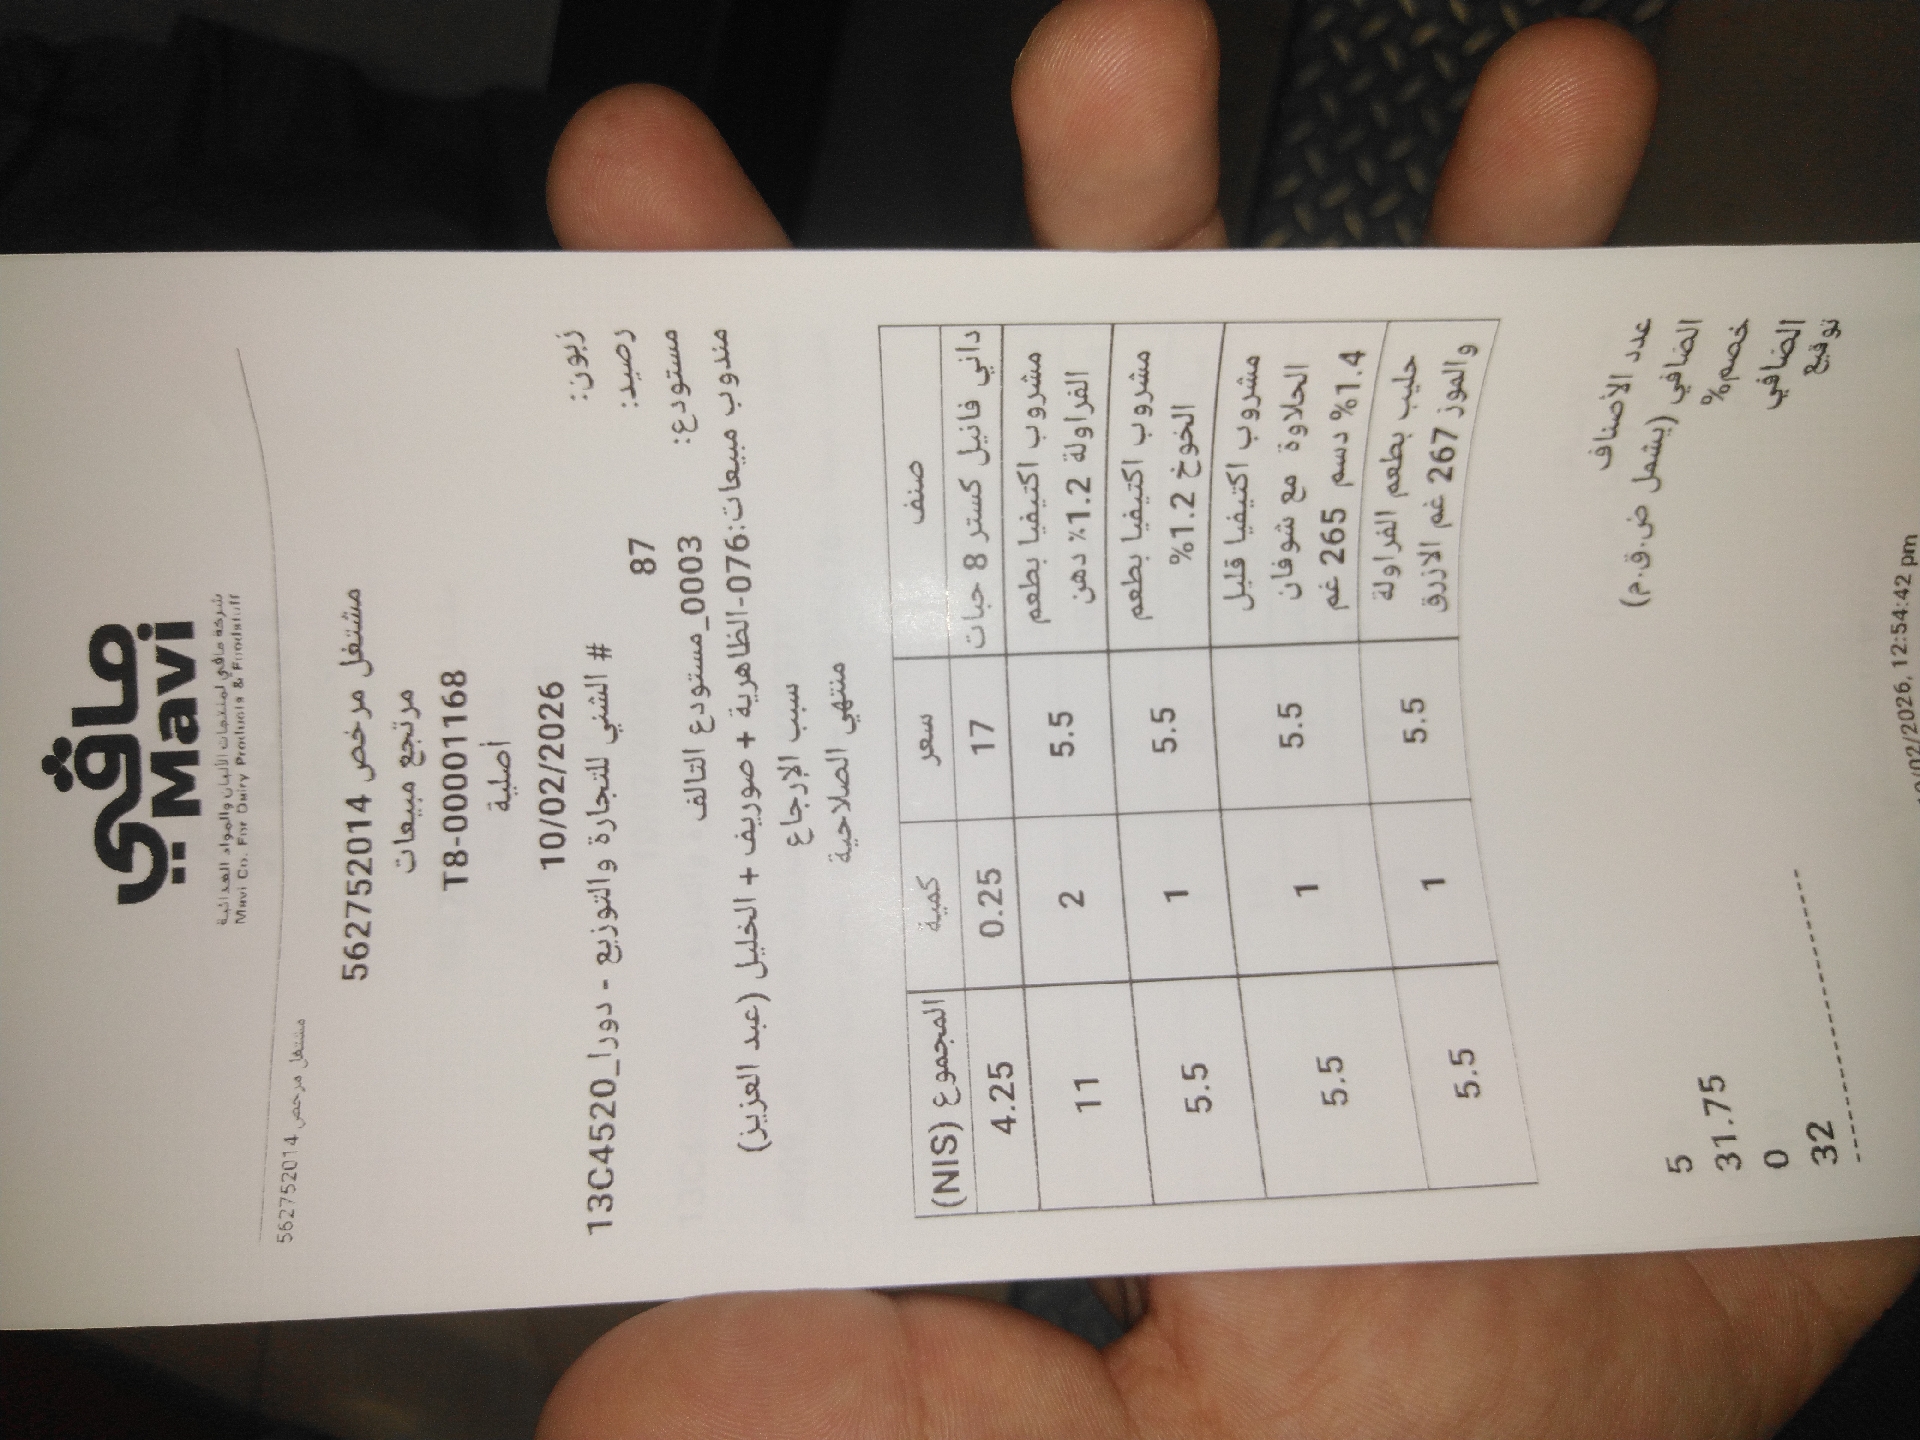 مافي
Mavi
شركة مافي لمنتجات الألبان والمواد الغذائية
Mavi Co. For Dairy Products & Foodstuff
مشتغل مرخص 562752014
مشتغل مرخص 562752014
مرتجع مبيعات
T8-00001168
أصلية
10/02/2026
زبون: # الشني للتجارة والتوزيع - دورا_13C4520
رصيد: 87
مستودع: 0003_مستودع التالف
مندوب مبيعات:076-الظاهرية + صوريف + الخليل (عبد العزيز)
سبب الإرجاع
منتهي الصلاحية
صنف سعر كمية المجموع (NIS)
داني فانيل كستر 8 حبات 17 0.25 4.25
مشروب اكتيفيا بطعم
الفراولة 1.2٪ دهن 5.5 2 11
مشروب اكتيفيا بطعم
الخوخ 1.2% 5.5 1 5.5
مشروب اكتيفيا قليل
الحلاوة مع شوفان
1.4% دسم 265 غم 5.5 1 5.5
حليب بطعم الفراولة
والموز 267 غم الازرق 5.5 1 5.5
عدد الأصناف 5
الصافي (يشمل ض.ق.م) 31.75
خصم% 0
الصافي 32
توقيع
10/02/2026, 12:54:42 pm